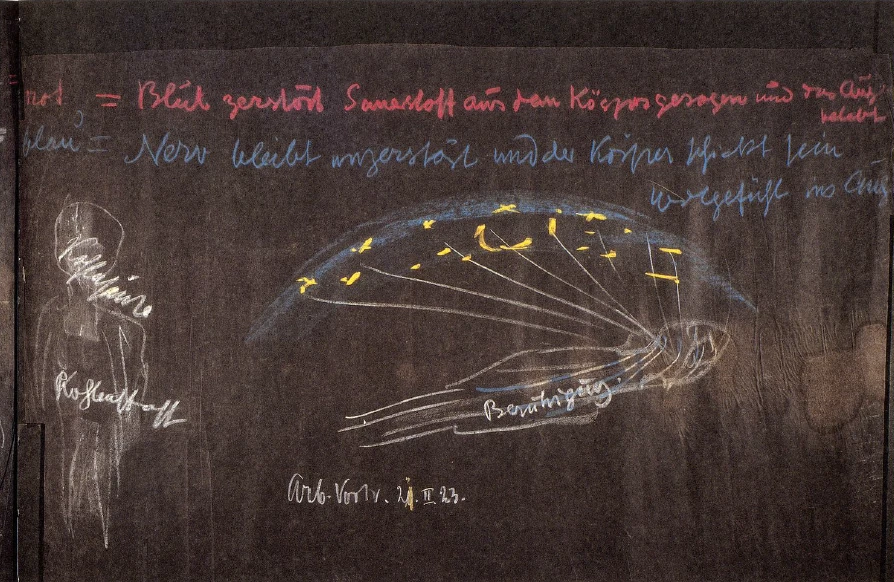 rot = Blut zerstört Sauerstoff aus dem Körper gezogen und das Aug
belebt
blau = Nerv bleibt unzerstört und der Körper schickt sein
Wolgefühl ins Aug
Kohlensäure
Kohlenstoff
Beruhigung.
Arb.-Vortr. 21. II 23.